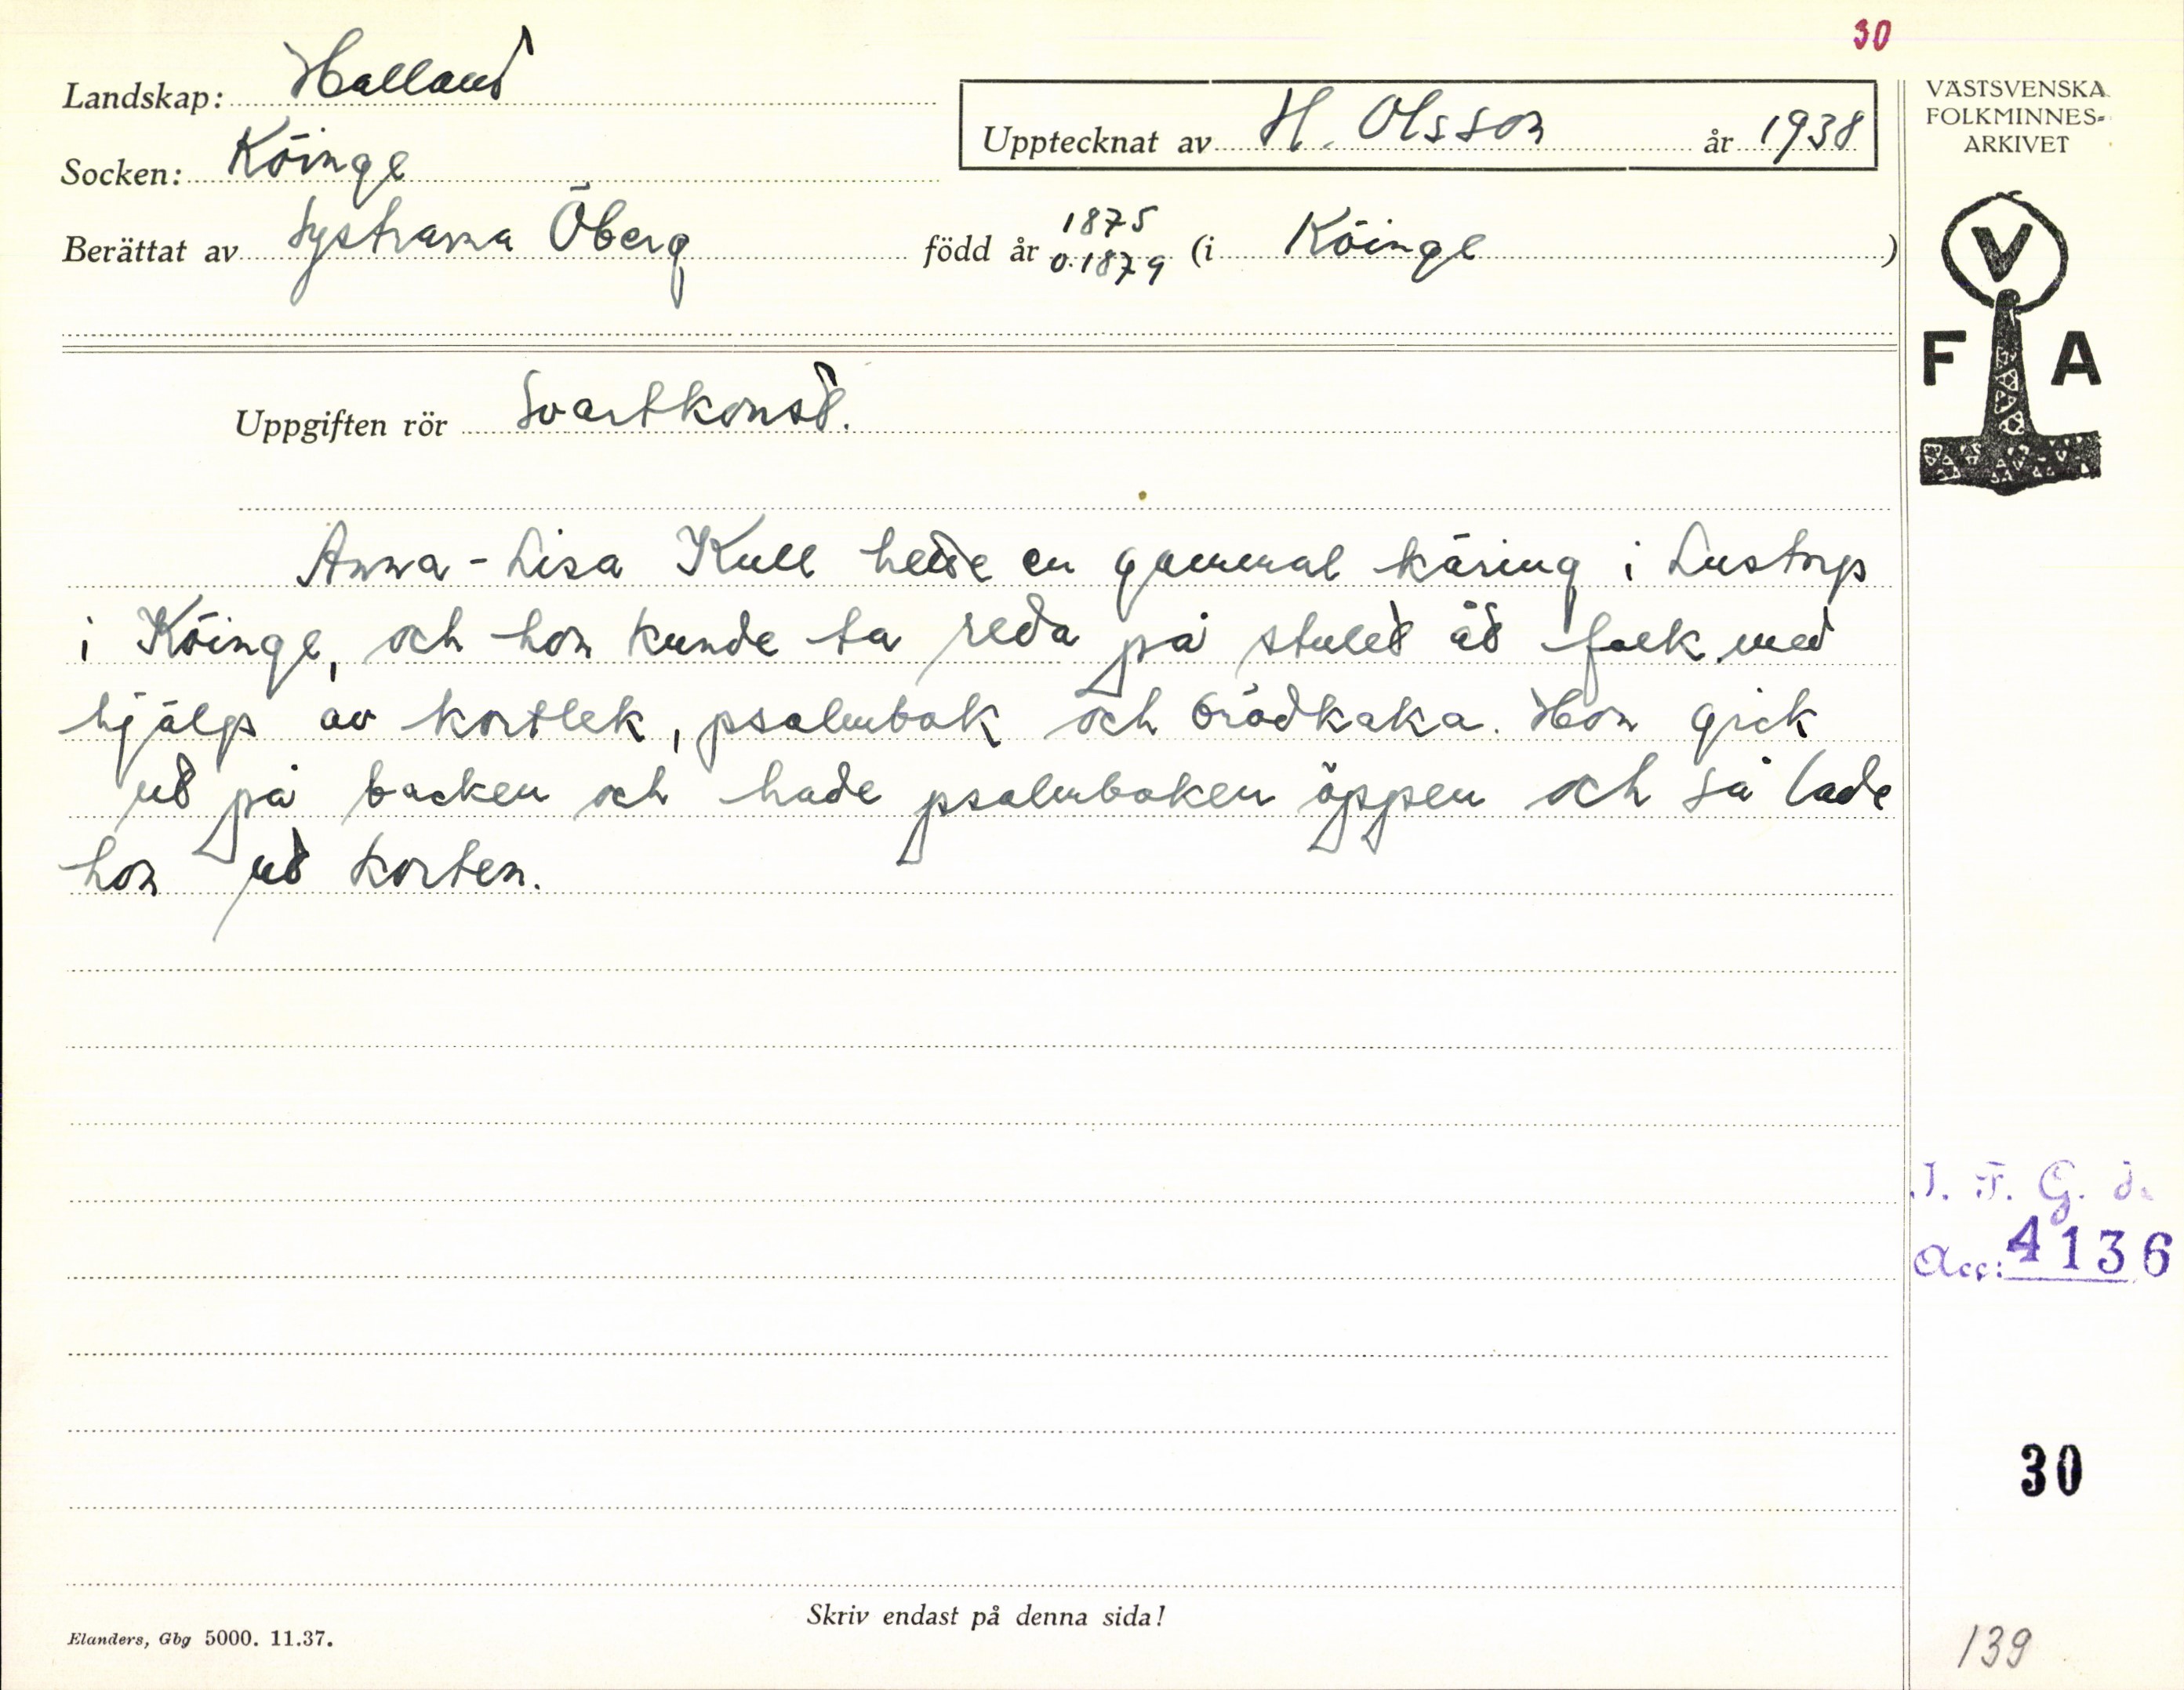 30
Landskap: Halland
Socken: Köinge
Berättat av Systrarna Öberg
Upptecknat av H. Olsson år 1938
född år 1875 o. 1879 (i Köinge)
VÄSTSVENSKA
FOLKMINNES-
ARKIVET
V
F A
Uppgiften rör Svartkonst.
Anna-Lisa Kull hette en gammal käring i Lustorp
i Köinge, och hon kunde ta reda på stulet åt folk med
hjälp av kortlek, psalmbok och brödkaka. Hon gick
ut på backen och hade psalmboken öppen och så lade
hon ut korten.
I. F. G. H.
Acc: 4136
30
Skriv endast på denna sida!
Elanders, Gbg 5000. 11.37.
139